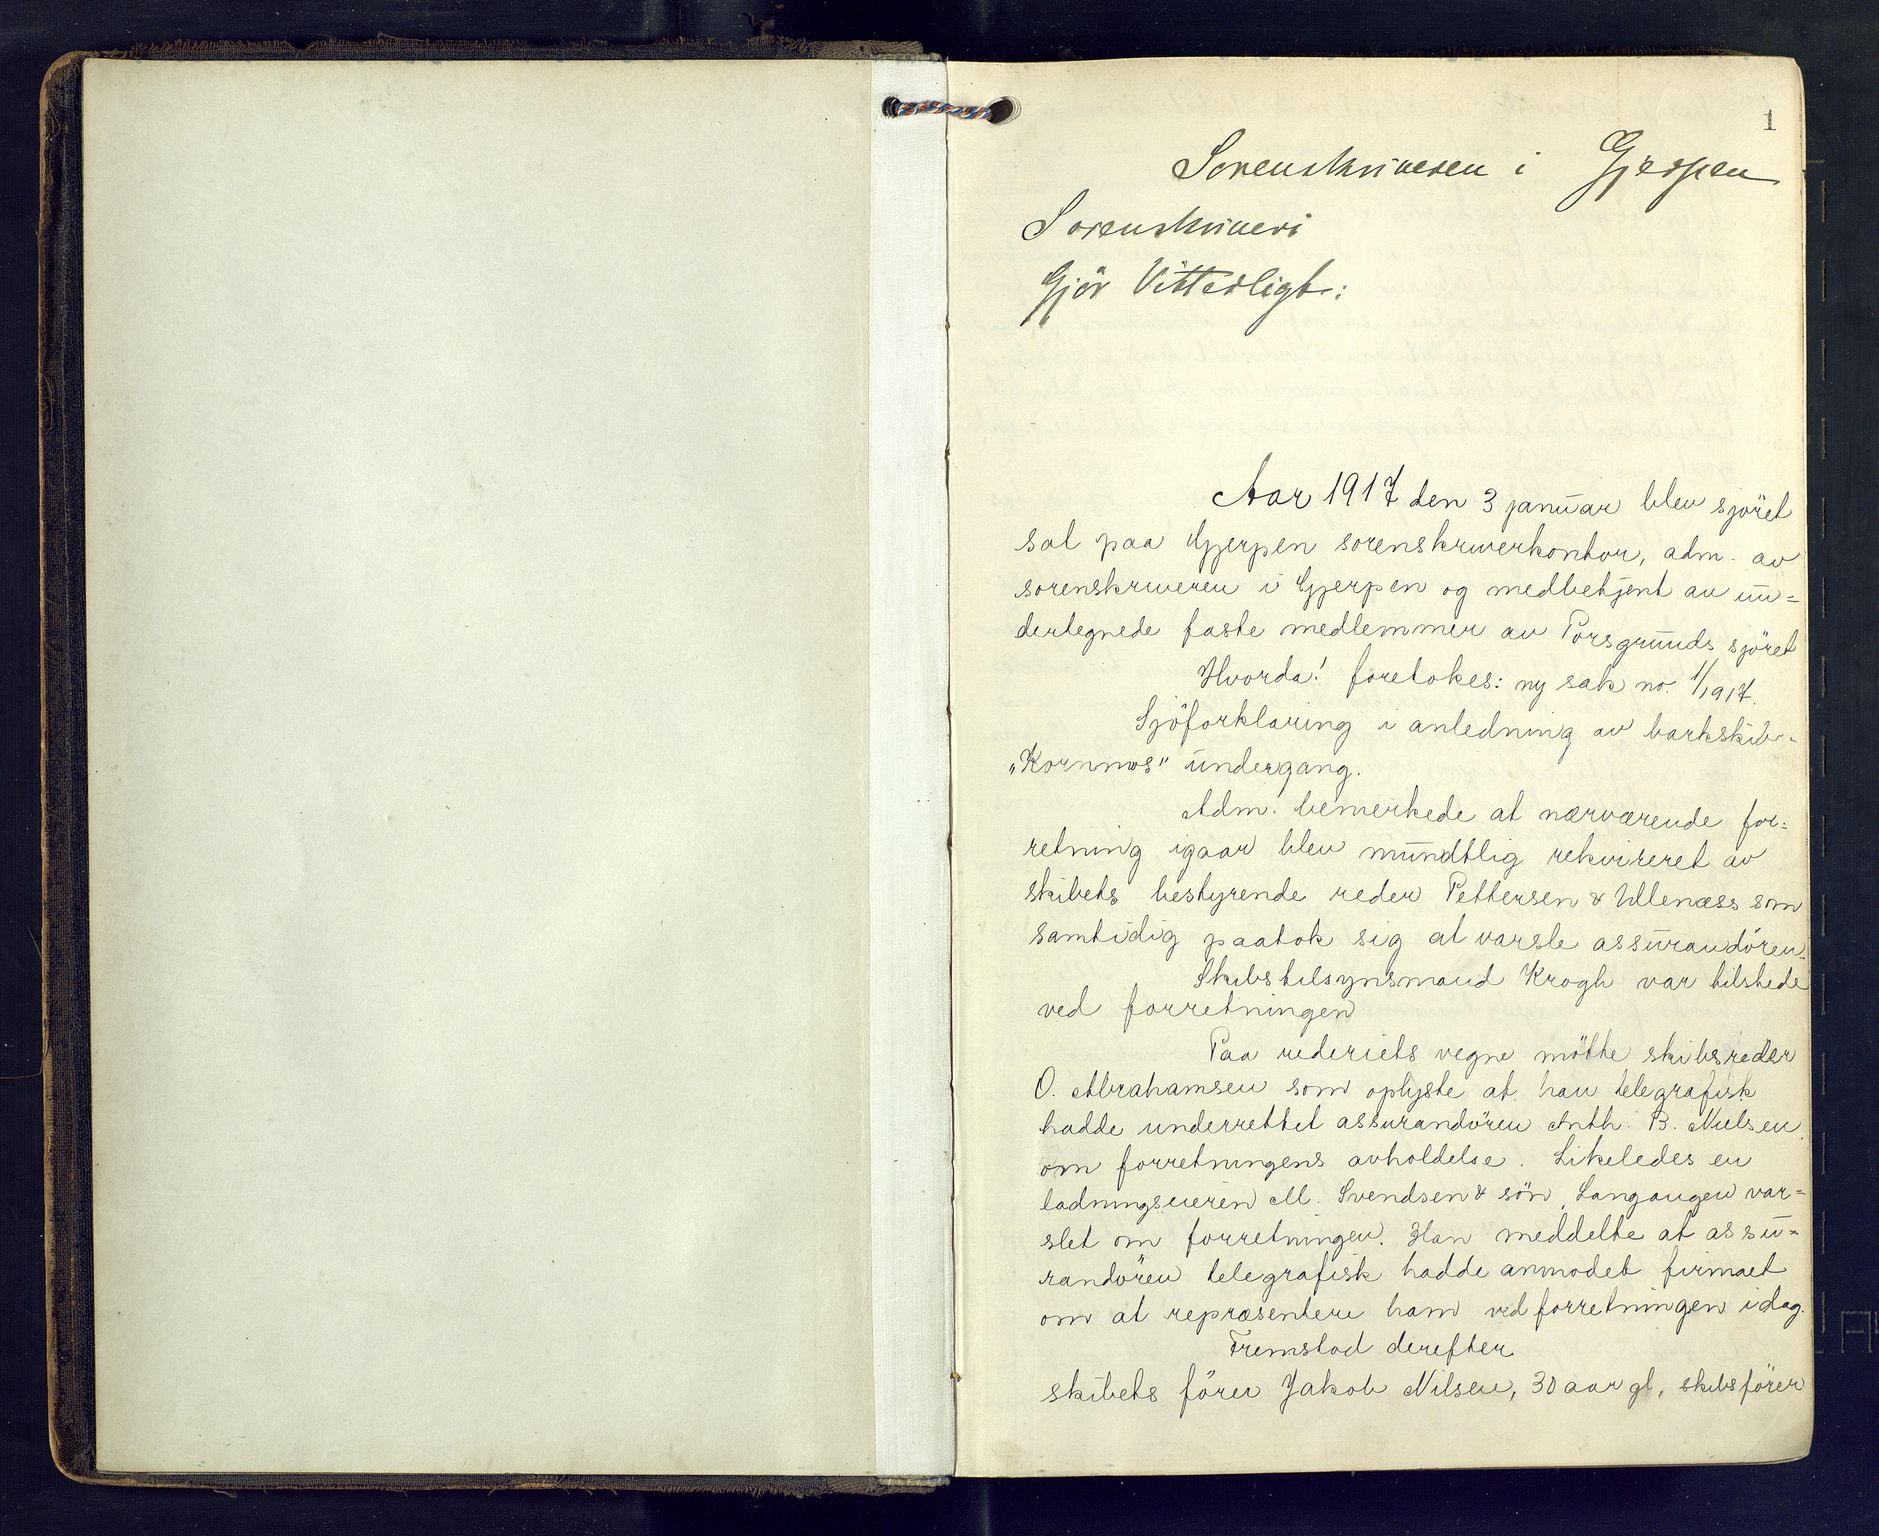 1
Sorenskriveren i Gjerpen
Sorenskriveri
Gjör Vitterligt:
Aar 1917 den 3 januar blev sjöret
sat paa Gjerpen sorenskriverkontor, adm. av
sorenskriveren i Gjerpen og medbetjent av un=
dertegnede faste medlemmer av Porsgrunds sjöret
Hvorda! foretokes: ny sak no. 1/1917.
Sjöforklaring i anledning av barkskib
"Kornmos" undergang.
Adm. bemerkede at nærværende for=
retning igaar blev mündtlig rekvireret av
skibets bestyrende reder Pettersen & Ullenæss som
samtidig paatok sig at varsle assurandören.
Skibstilsynsmand Krogh var tilstede
ved forretningen
Paa rederiets vegne mötte skibsreder
O. Abrahamsen som oplyste at han telegrafisk
hadde underrettet assurandören Anth. B. Nielsen
om forretningens avholdelse. Likeledes en
ladningseieren M. Svendsen & sön, Langangen var=
slet om forretningen. Han meddelte at assu=
randören telegrafisk hadde anmodet firmaet
om at repræsentere ham ved forretningen idag.
Fremstod derefter
skibets förer Jakob Nilsen, 30 aar gl, skibsförer